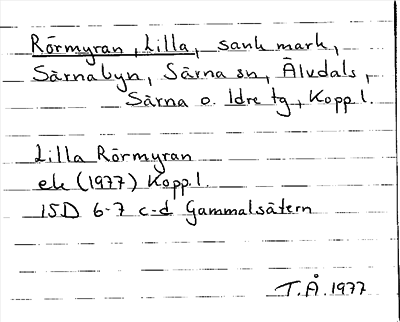 Rörmyran, Lilla, sank mark,
Särnabyn, Särna sn, Älvdals,
Särna o. Idre tg, Kopp l.
Lilla Rörmyran
ek (1977) Kopp. l.
15D 6-7 c-d Gammalsätern
T.Å. 1977